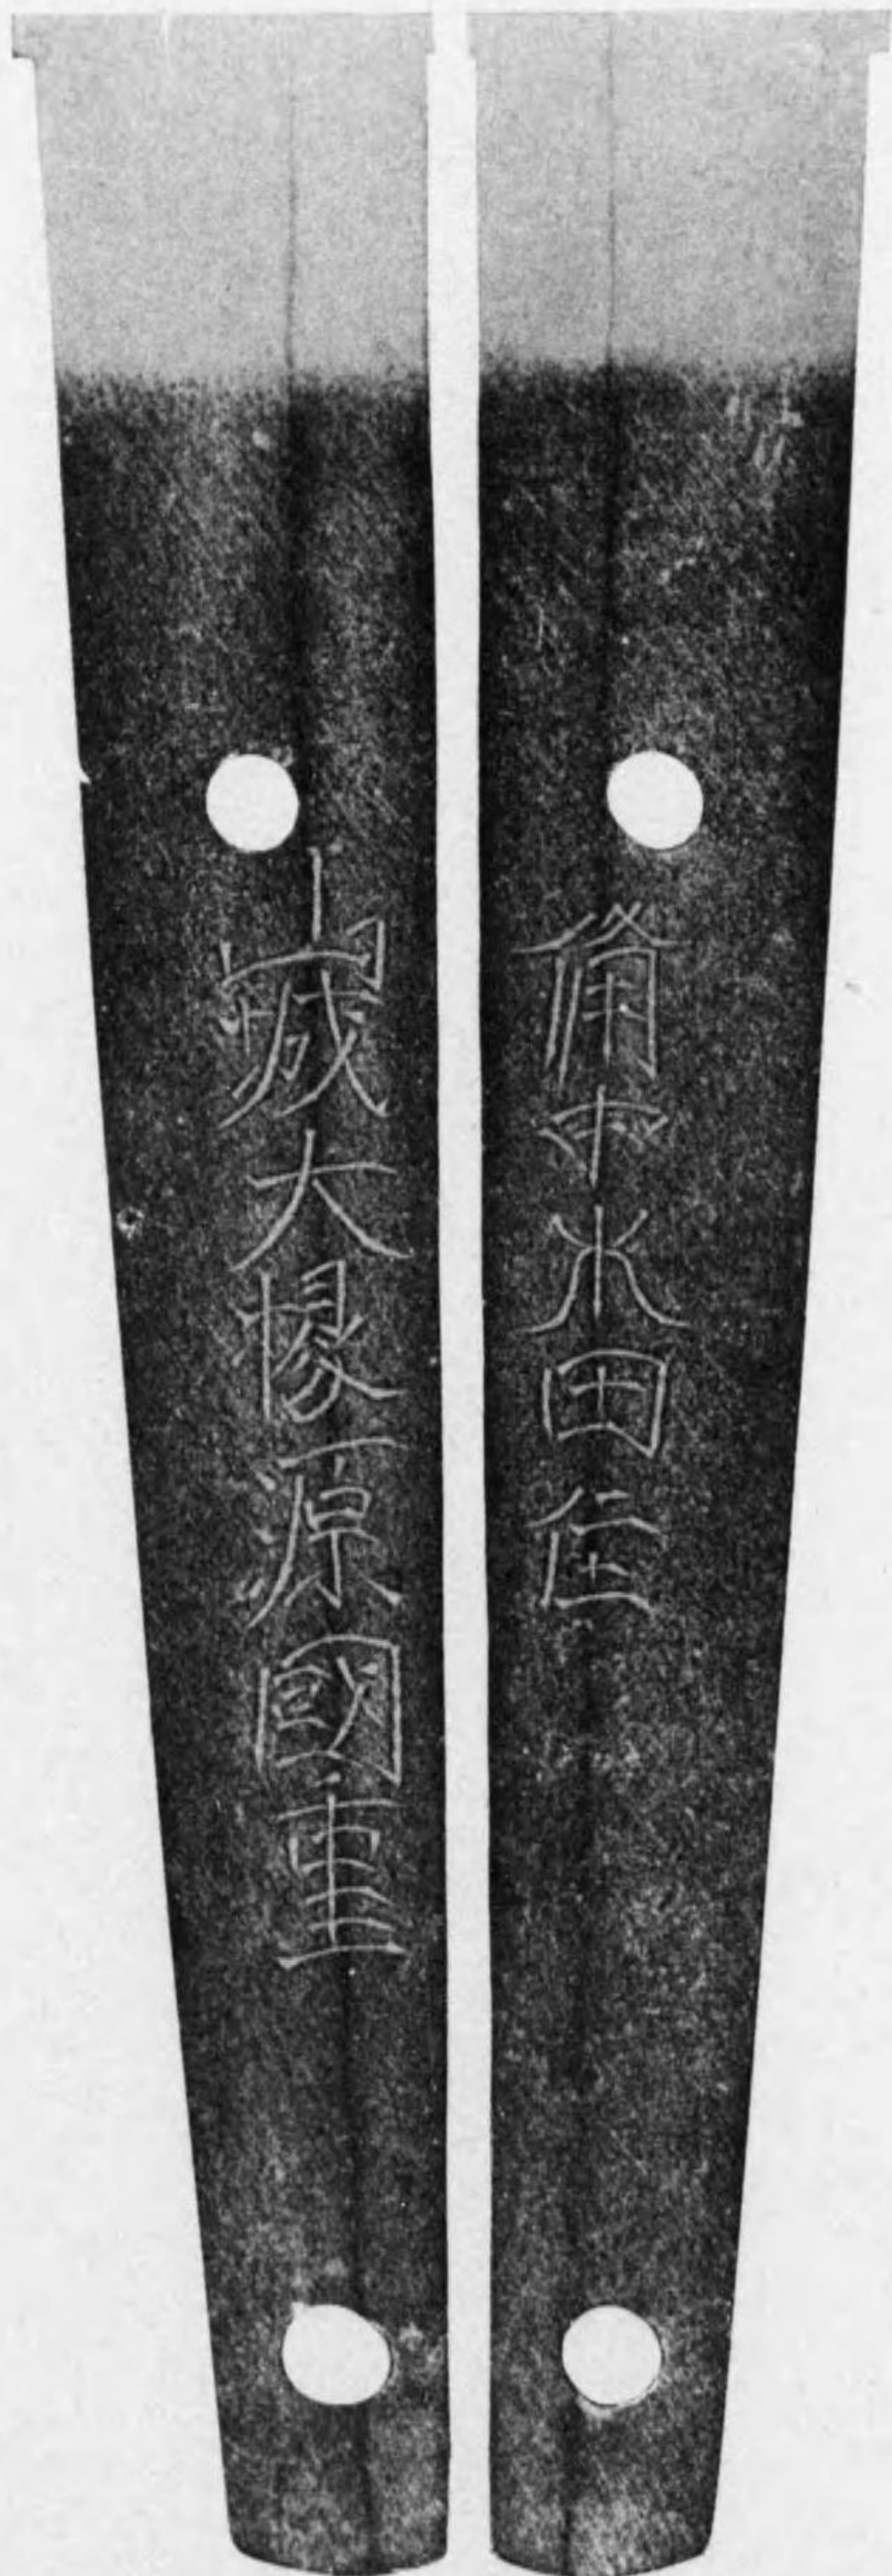 備中水田住
山城大掾源國重